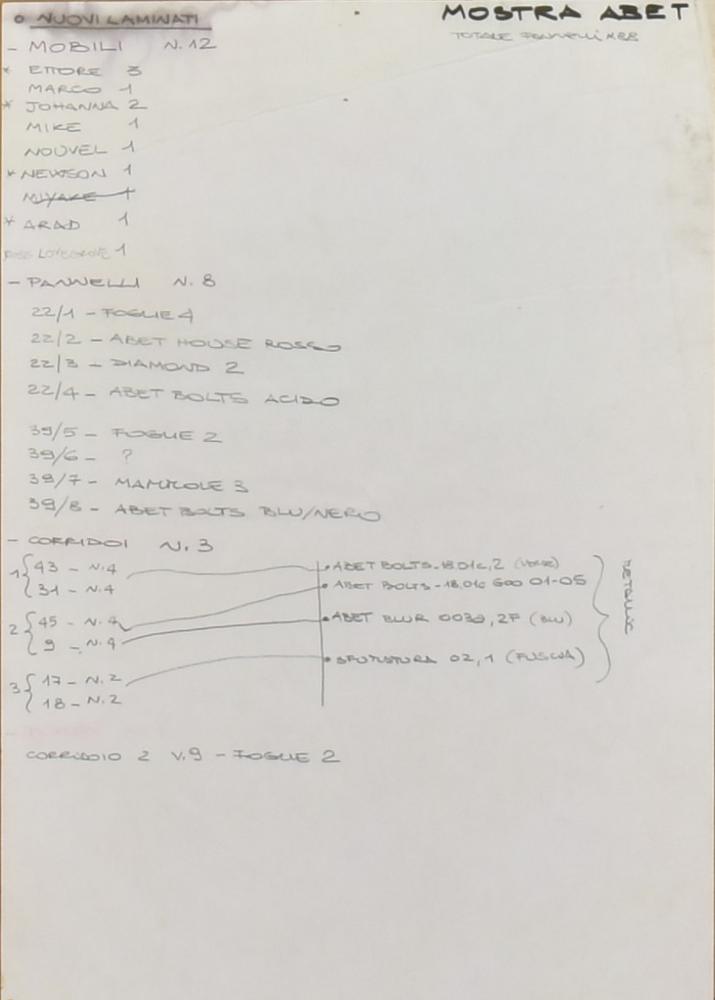 MOSTRA ABET
TOTALE PANNELLI
NUOVI LAMINATI
- MOBILI N.12
* ETTORE 3
MARCO 1
* JOHANNA 2
MIKE 1
NOUVEL 1
* NEWSON 1
MIYAKE 1
* ARAD 1
ROSS LOVEGROVE 1
- PANNELLI N. 8
22/1 - FOGLIE 4
22/2 - ABET HOUSE ROSSO
22/3 - DIAMOND 2
22/4 - ABET BOLTS ACIDO
39/5 - FOGLIE 2
39/6 - ?
39/7 - 3
39/8 - ABET BOLTS BLU/NERO
- CORRIDOI N. 3
1 { 43 - N.4
31 - N.4
2 { 45 - N.4
9 - N.4
3 { 17 - N.2
18 - N.2
ABET BOLTS-18.01c,2
ABET BOLTS-18.01c 600 01-05
ABET BLUR 0039,2F (BLU)
SFUMATURA 02,1 (FUSCIA)
METALLIC
CORRIDOIO 2 V.9 - FOGLIE 2